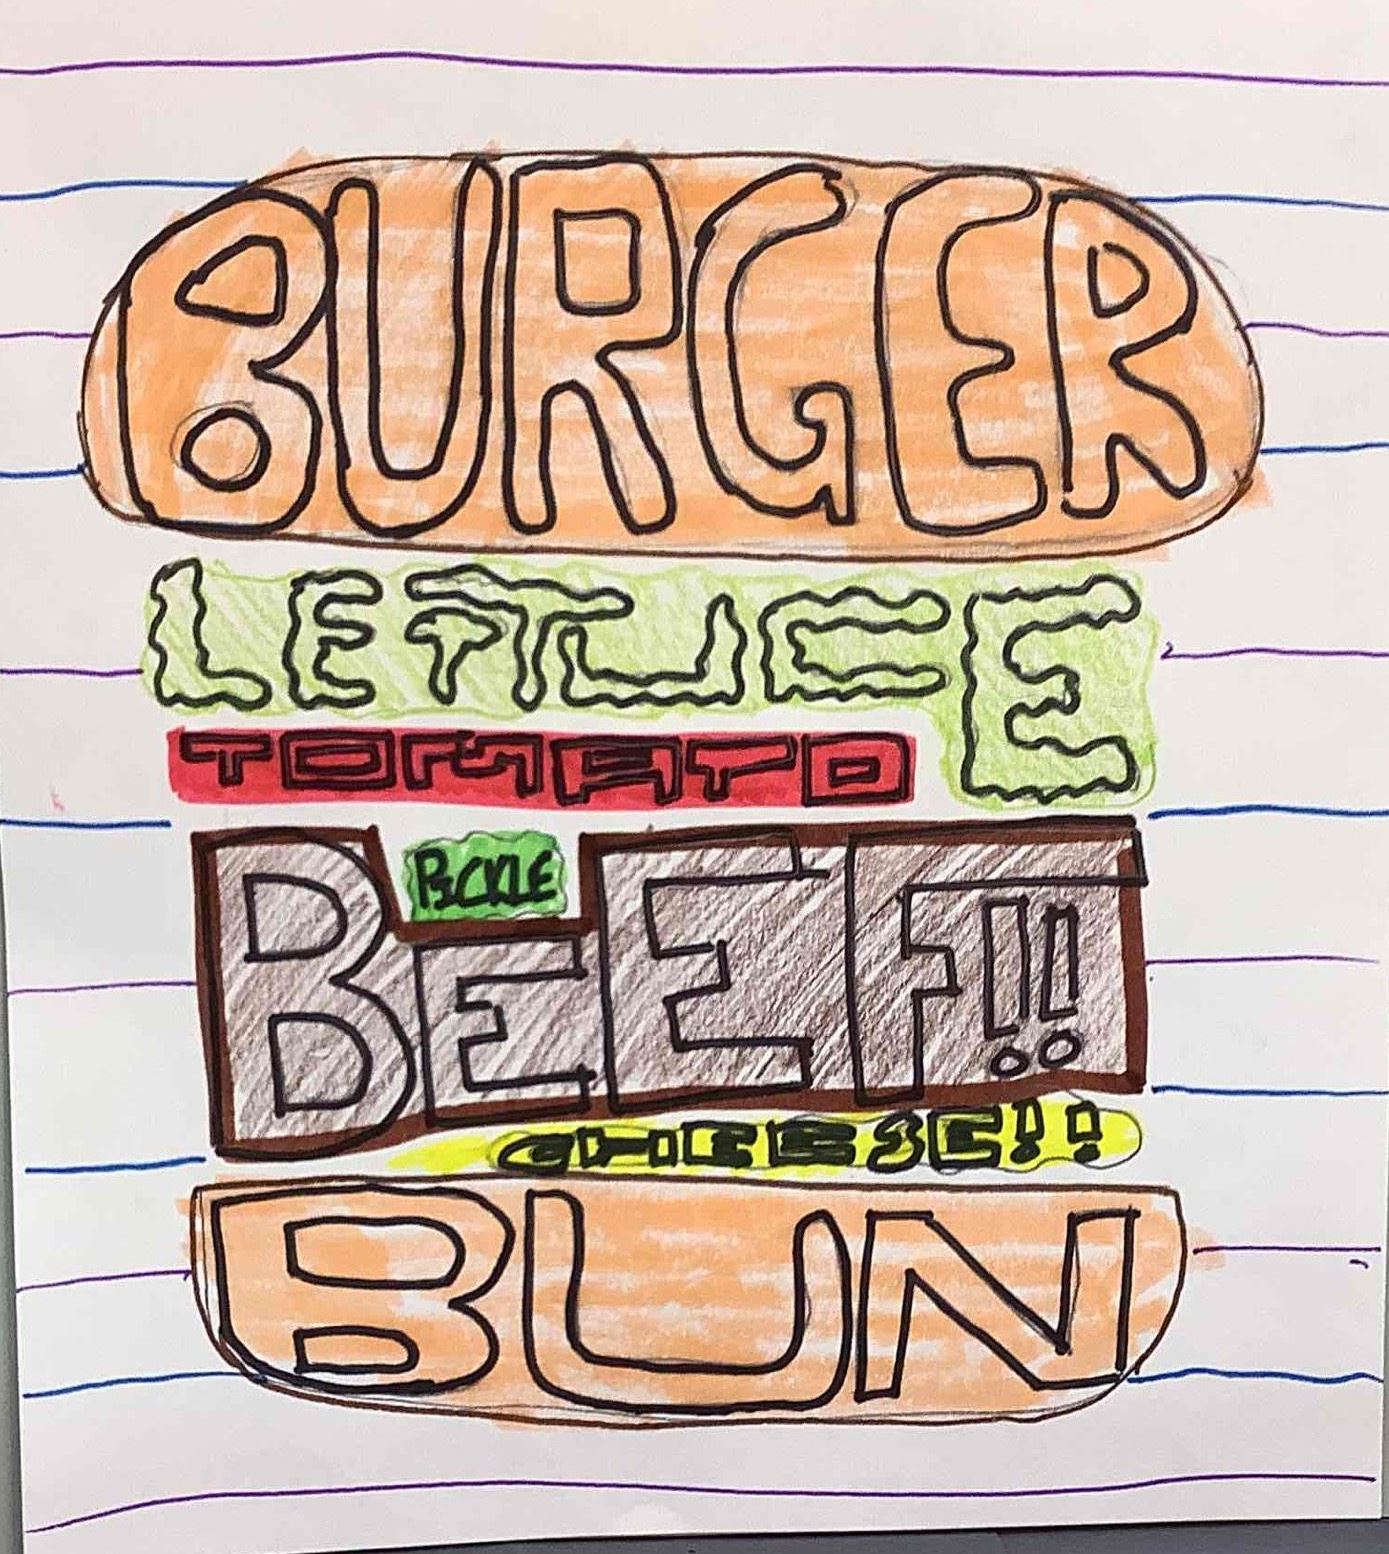 BURGER
LETTUCE
TOMATO
PICKLE
BEEF!!
CHEESE!!
BUN